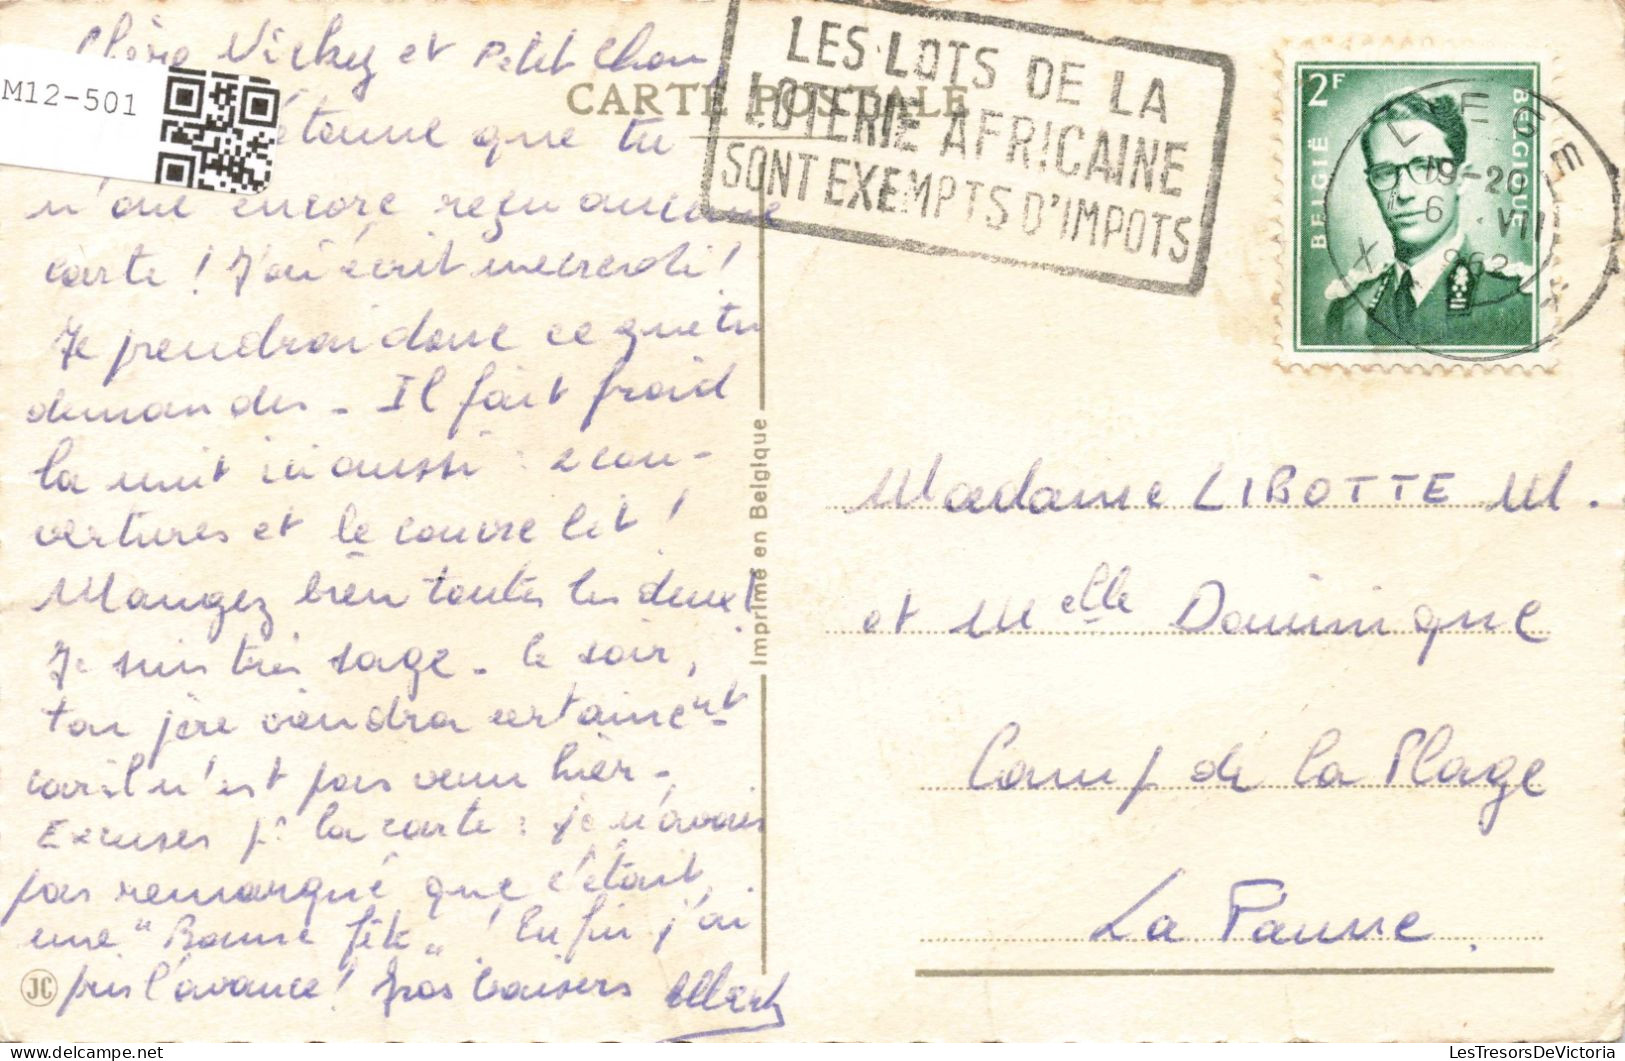 Chère Vicky et Petit Chou,
M12-501
étonne que tu
n'aie encore reçu aucune
carte ! J'ai écrit mercredi !
Je prendrai donc ce que tu
demandes - Il fait froid
la nuit ici aussi : 2 cou-
vertures et le couvre lit !
Mangez bien toutes les deux !
Je suis très sage - le soir,
ton père viendra certainemt
car il n'est pas venu hier -
Excuses pr la carte : je n'avais
pas remarqué que c'était
une "Bonne fête" ! Enfin j'ai
pris l'avance ! Gros baisers Albert
JC
CARTE POSTALE
Imprimé en Belgique
LES LOTS DE LA
LOTERIE AFRICAINE
SONT EXEMPTS D'IMPOTS
2F
BELGIË
BELGIQUE
LIEGE X
19-20
6 VII
962
Madame LIBOTTE M.
et Melle Dominique
Camp de la Plage
La Panne.
LesTresorsDeVictoria